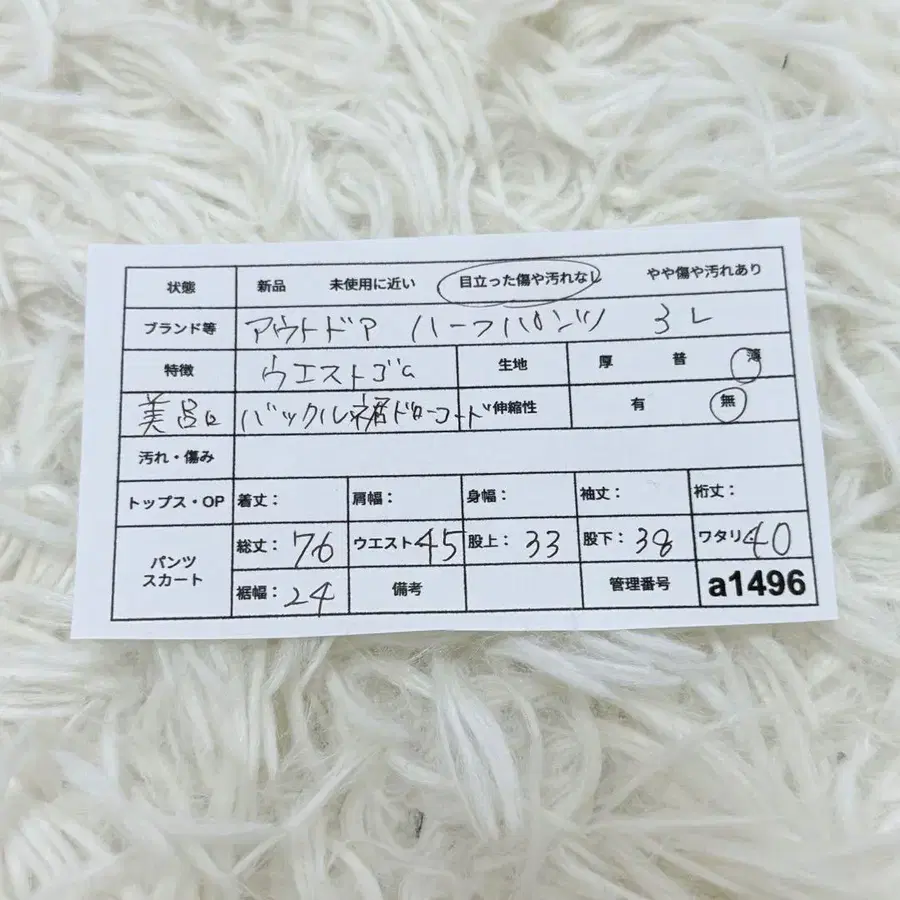 状態 新品 未使用に近い 目立った傷や汚れなし やや傷や汚れあり
ブランド等 アウトドア ハーフパンツ 3L
特徴 ウエストゴム 生地 厚 普 薄
美品 バックル裾ドローコード 伸縮性 有 無
汚れ・傷み
トップス・OP 着丈: 肩幅: 身幅: 袖丈: 裄丈:
パンツ スカート 総丈: 76 ウエスト 45 股上: 33 股下: 38 ワタリ 40
裾幅: 24 備考 管理番号 a1496